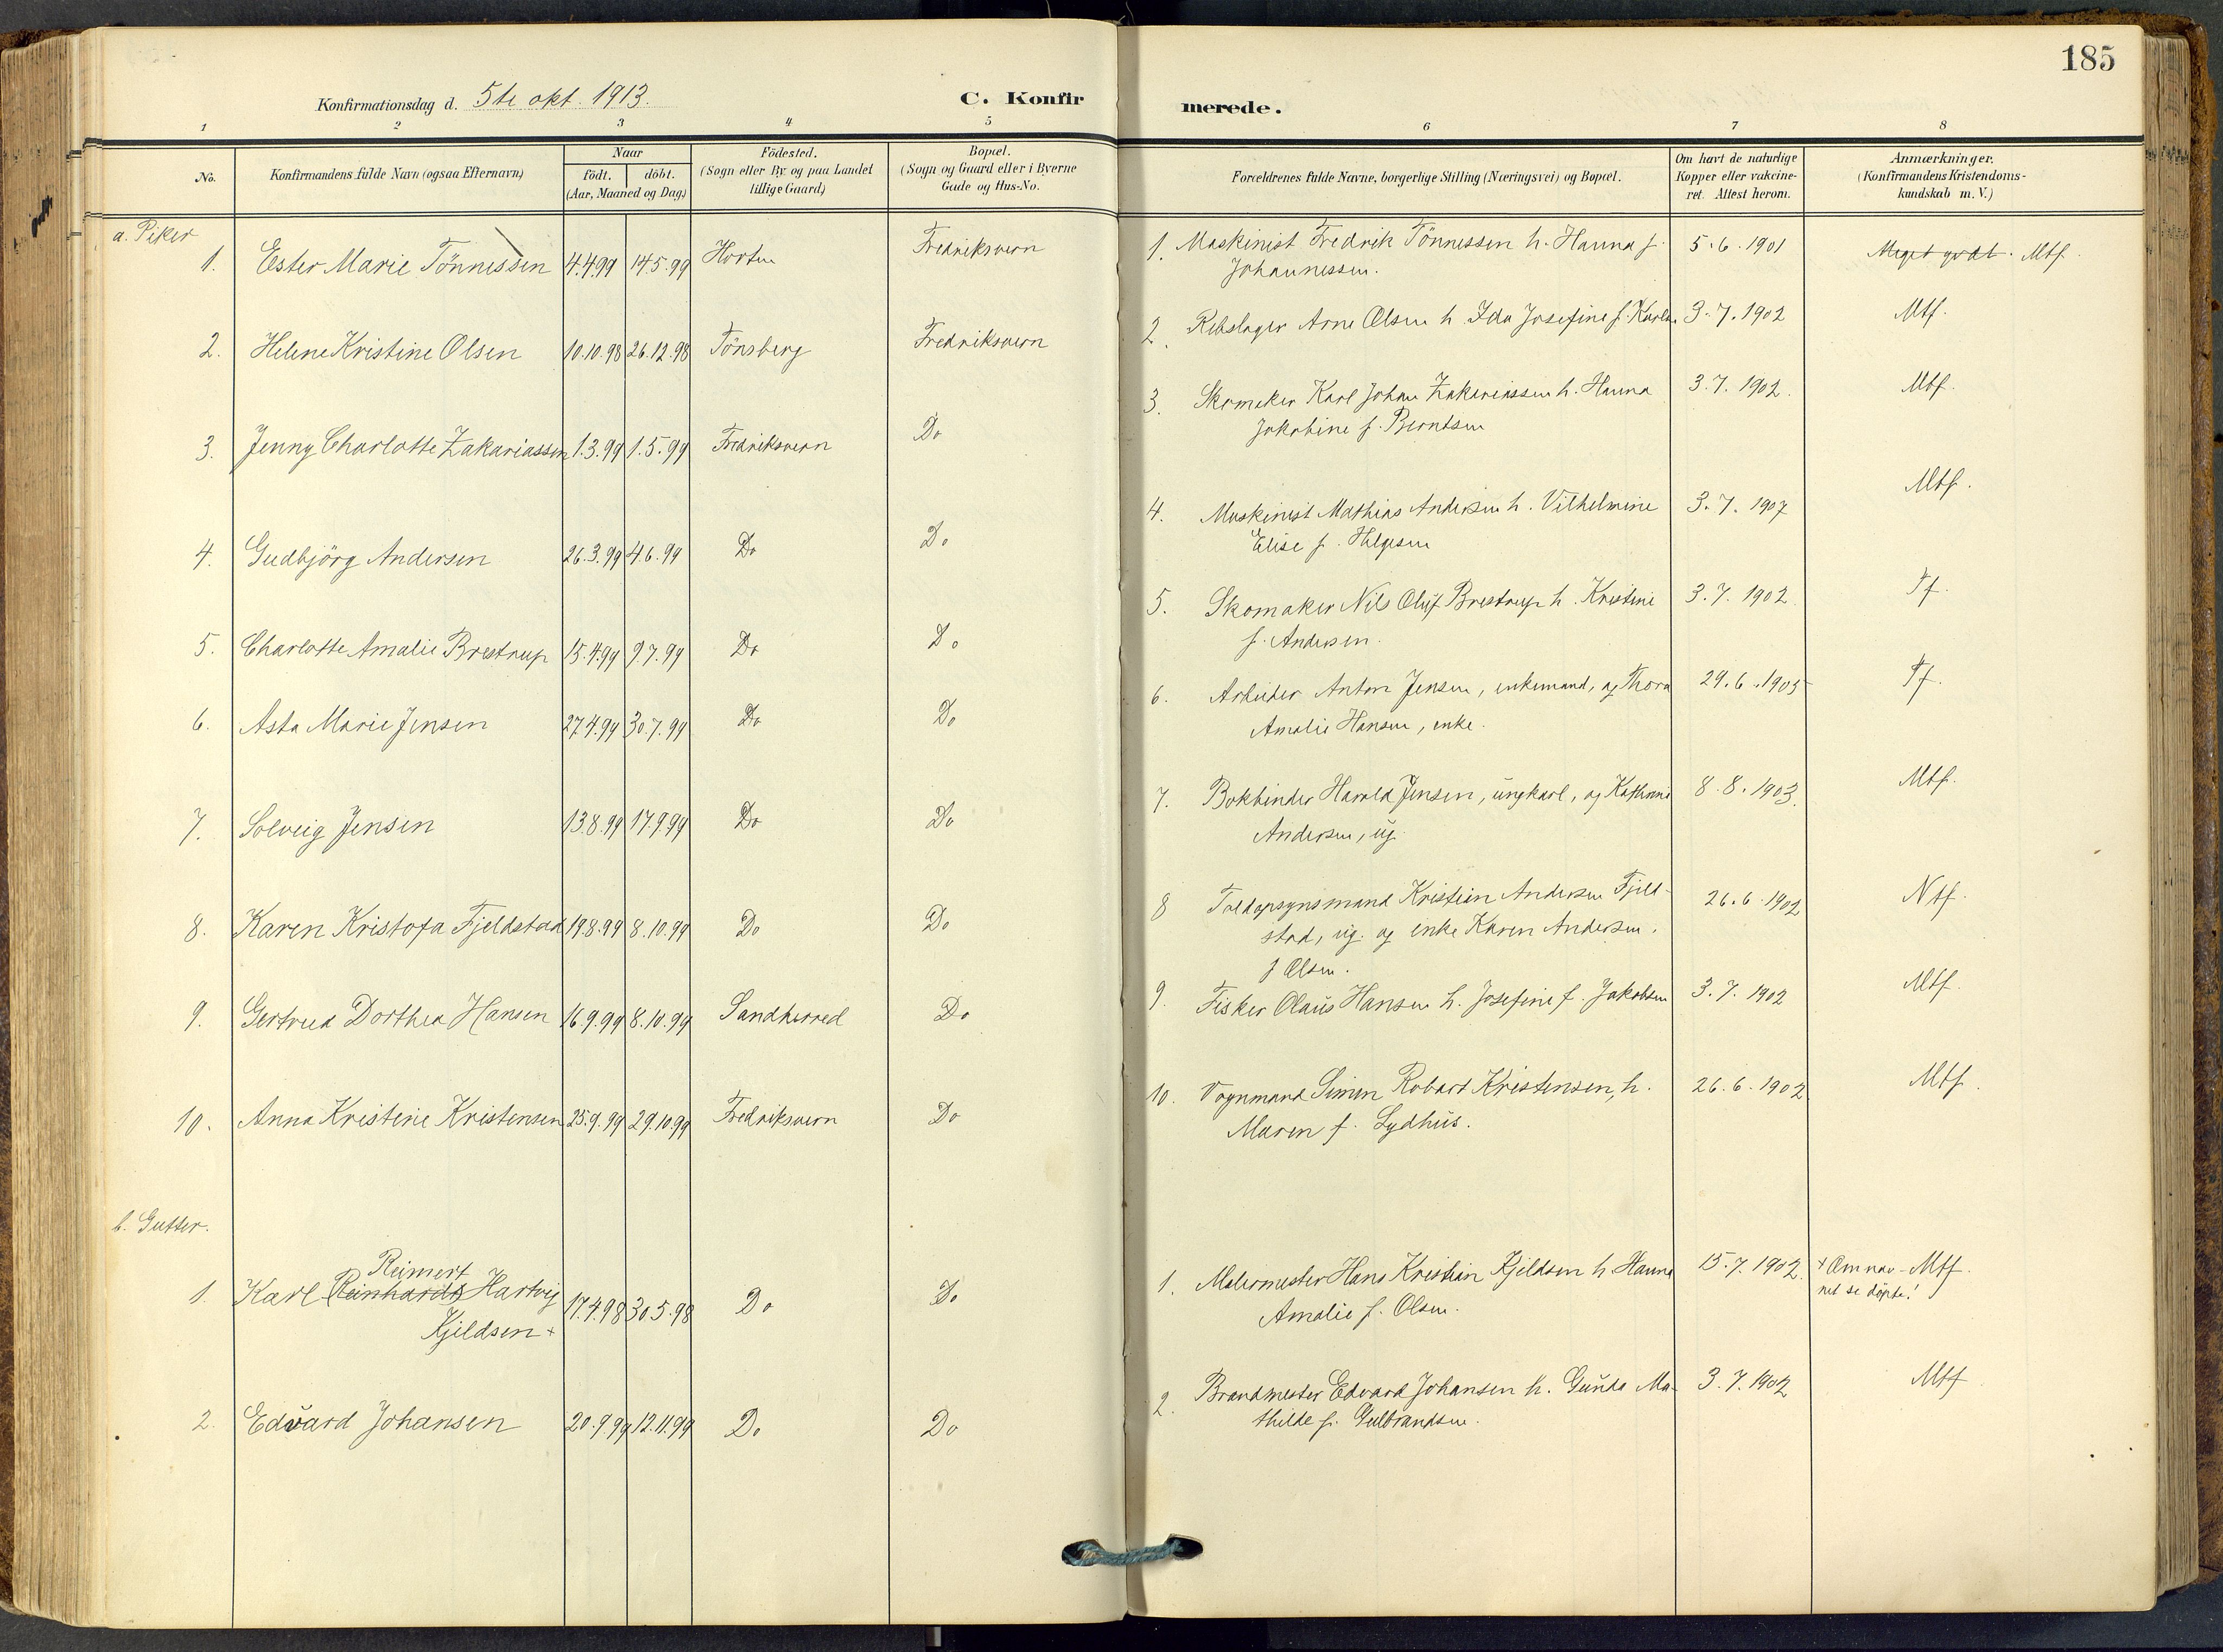 185
Konfirmationsdag d. 5te okt. 1913.
C. Konfirmerede.
1 2 3 4 5 6 7 8
No.
Konfirmandens fulde Navn (ogsaa Efternavn)
Naar
födt. döbt.
(Aar, Maaned og Dag)
Födested.
(Sogn eller By og paa Landet
tillige Gaard)
Bopæl.
(Sogn og Gaard eller i Byerne
Gade og Hus-No.
Forældrenes fulde Navne, borgerlige Stilling (Næringsvei) og Bopæl.
Om havt de naturlige
Kopper eller vakcine-
ret. Attest herom.
Anmærkninger.
(Konfirmandens Kristendoms-
kundskab m. V.)
a. Piker
1. Ester Marie Tönnessen 4.4.99 14.5.99 Horten Fredriksvern
1. Maskinist Fredrik Tönnessen h. Hanna f. 5.6.1901 Meget godt. Mtf.
Johannessen.
2. Helene Kristine Olsen 10.10.98 26.12.98 Tönsberg Fredriksvern
2. Rebslager Arne Olsen h. Ida Josefine f. Karlsen 3.7.1902 Mtf.
3. Jenny Charlotte Zakariassen 1.3.99 1.5.99 Fredriksvern Do
3. Skomaker Karl Johan Zakariassen h. Hanna 3.7.1902. Mtf.
Jakobine f. Berntsen
4. Gudbjörg Andersen 26.3.99 4.6.99 Do Do
4. Maskinist Mathias Andersen h. Vilhelmine 3.7.1907 Mtf.
Elise f. Helgesen
5. Charlotte Amalie Brestrup 15.4.99 9.7.99 Do Do
5. Skomaker Nils Oluf Brestrup h. Kristine 3.7.1902 Tf.
f. Andersen.
6. Asta Marie Jensen 27.4.99 30.7.99 Do Do
6. Arbeider Anton Jensen, enkemand, og Thora 29.6.1905 Tf.
Amalie Hansen, enke.
7. Solveig Jensen 13.8.99 17.9.99 Do Do
7. Bokbinder Harald Jensen, ungkarl, og Kathrine 8.8.1903. Mtf.
Andersen, ug.
8. Karen Kristofa Fjeldstad 19.8.99 8.10.99 Do Do
8 Toldopsynsmand Kristian Andersen Fjeld- 26.6.1902 Ntf.
stad, ug. og enke Karen Andersen.
f Olsen.
9. Gertrud Dorthea Hansen 16.9.99 8.10.99 Sandherred Do
9. Fisker Olaus Hansen h. Josefine f. Jakobsen 3.7.1902 Mtf.
10. Anna Kristine Kristensen 25.9.99 29.10.99 Fredriksvern Do
10. Vognmand Simen Robart Kristensen, h. 26.6.1902 Mtf.
Maren f. Lydhus.
b. Gutter.
Reimert
1. Karl Reinhardt Hartvig 17.4.98 30.5.98 Do Do
Kjeldsen +
1. Malermester Hans Kristian Kjeldsen h. Hanna 15.7.1902. + Om nav- Mtf.
Amalie f. Olsen. net se döpte!
2. Edvard Johansen 20.9.99 12.11.99 Do Do
2. Brandmester Edvard Johansen h. Gunda Ma- 3.7.1902 Mtf
thilde f. Gulbrandsen.